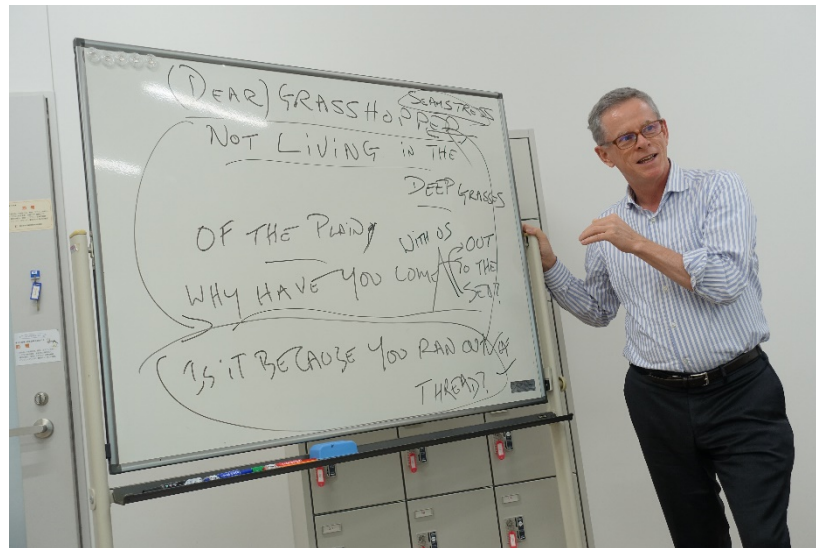 (DEAR) GRASSHOPPER
SEAMSTRESS
NOT LIVING IN THE
DEEP GRASSES
OF THE PLAIN,
WHY HAVE YOU COME
WITH US
OUT
TO THE
SEA?
IS IT BECAUSE YOU RAN OUT OF
THREAD?